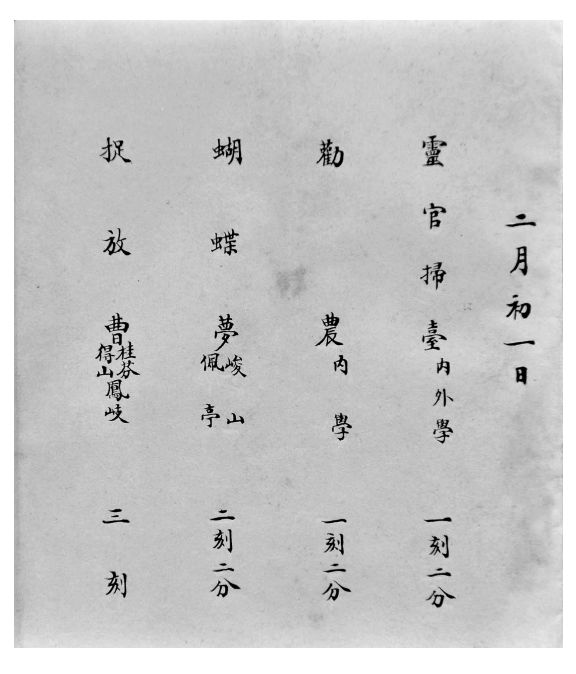 二月初一日
靈官掃臺 內外學 一刻二分
勸農 內學 一刻二分
蝴蝶夢 峻山 佩亭 二刻二分
捉放曹 桂芬 得山 鳳岐 三刻